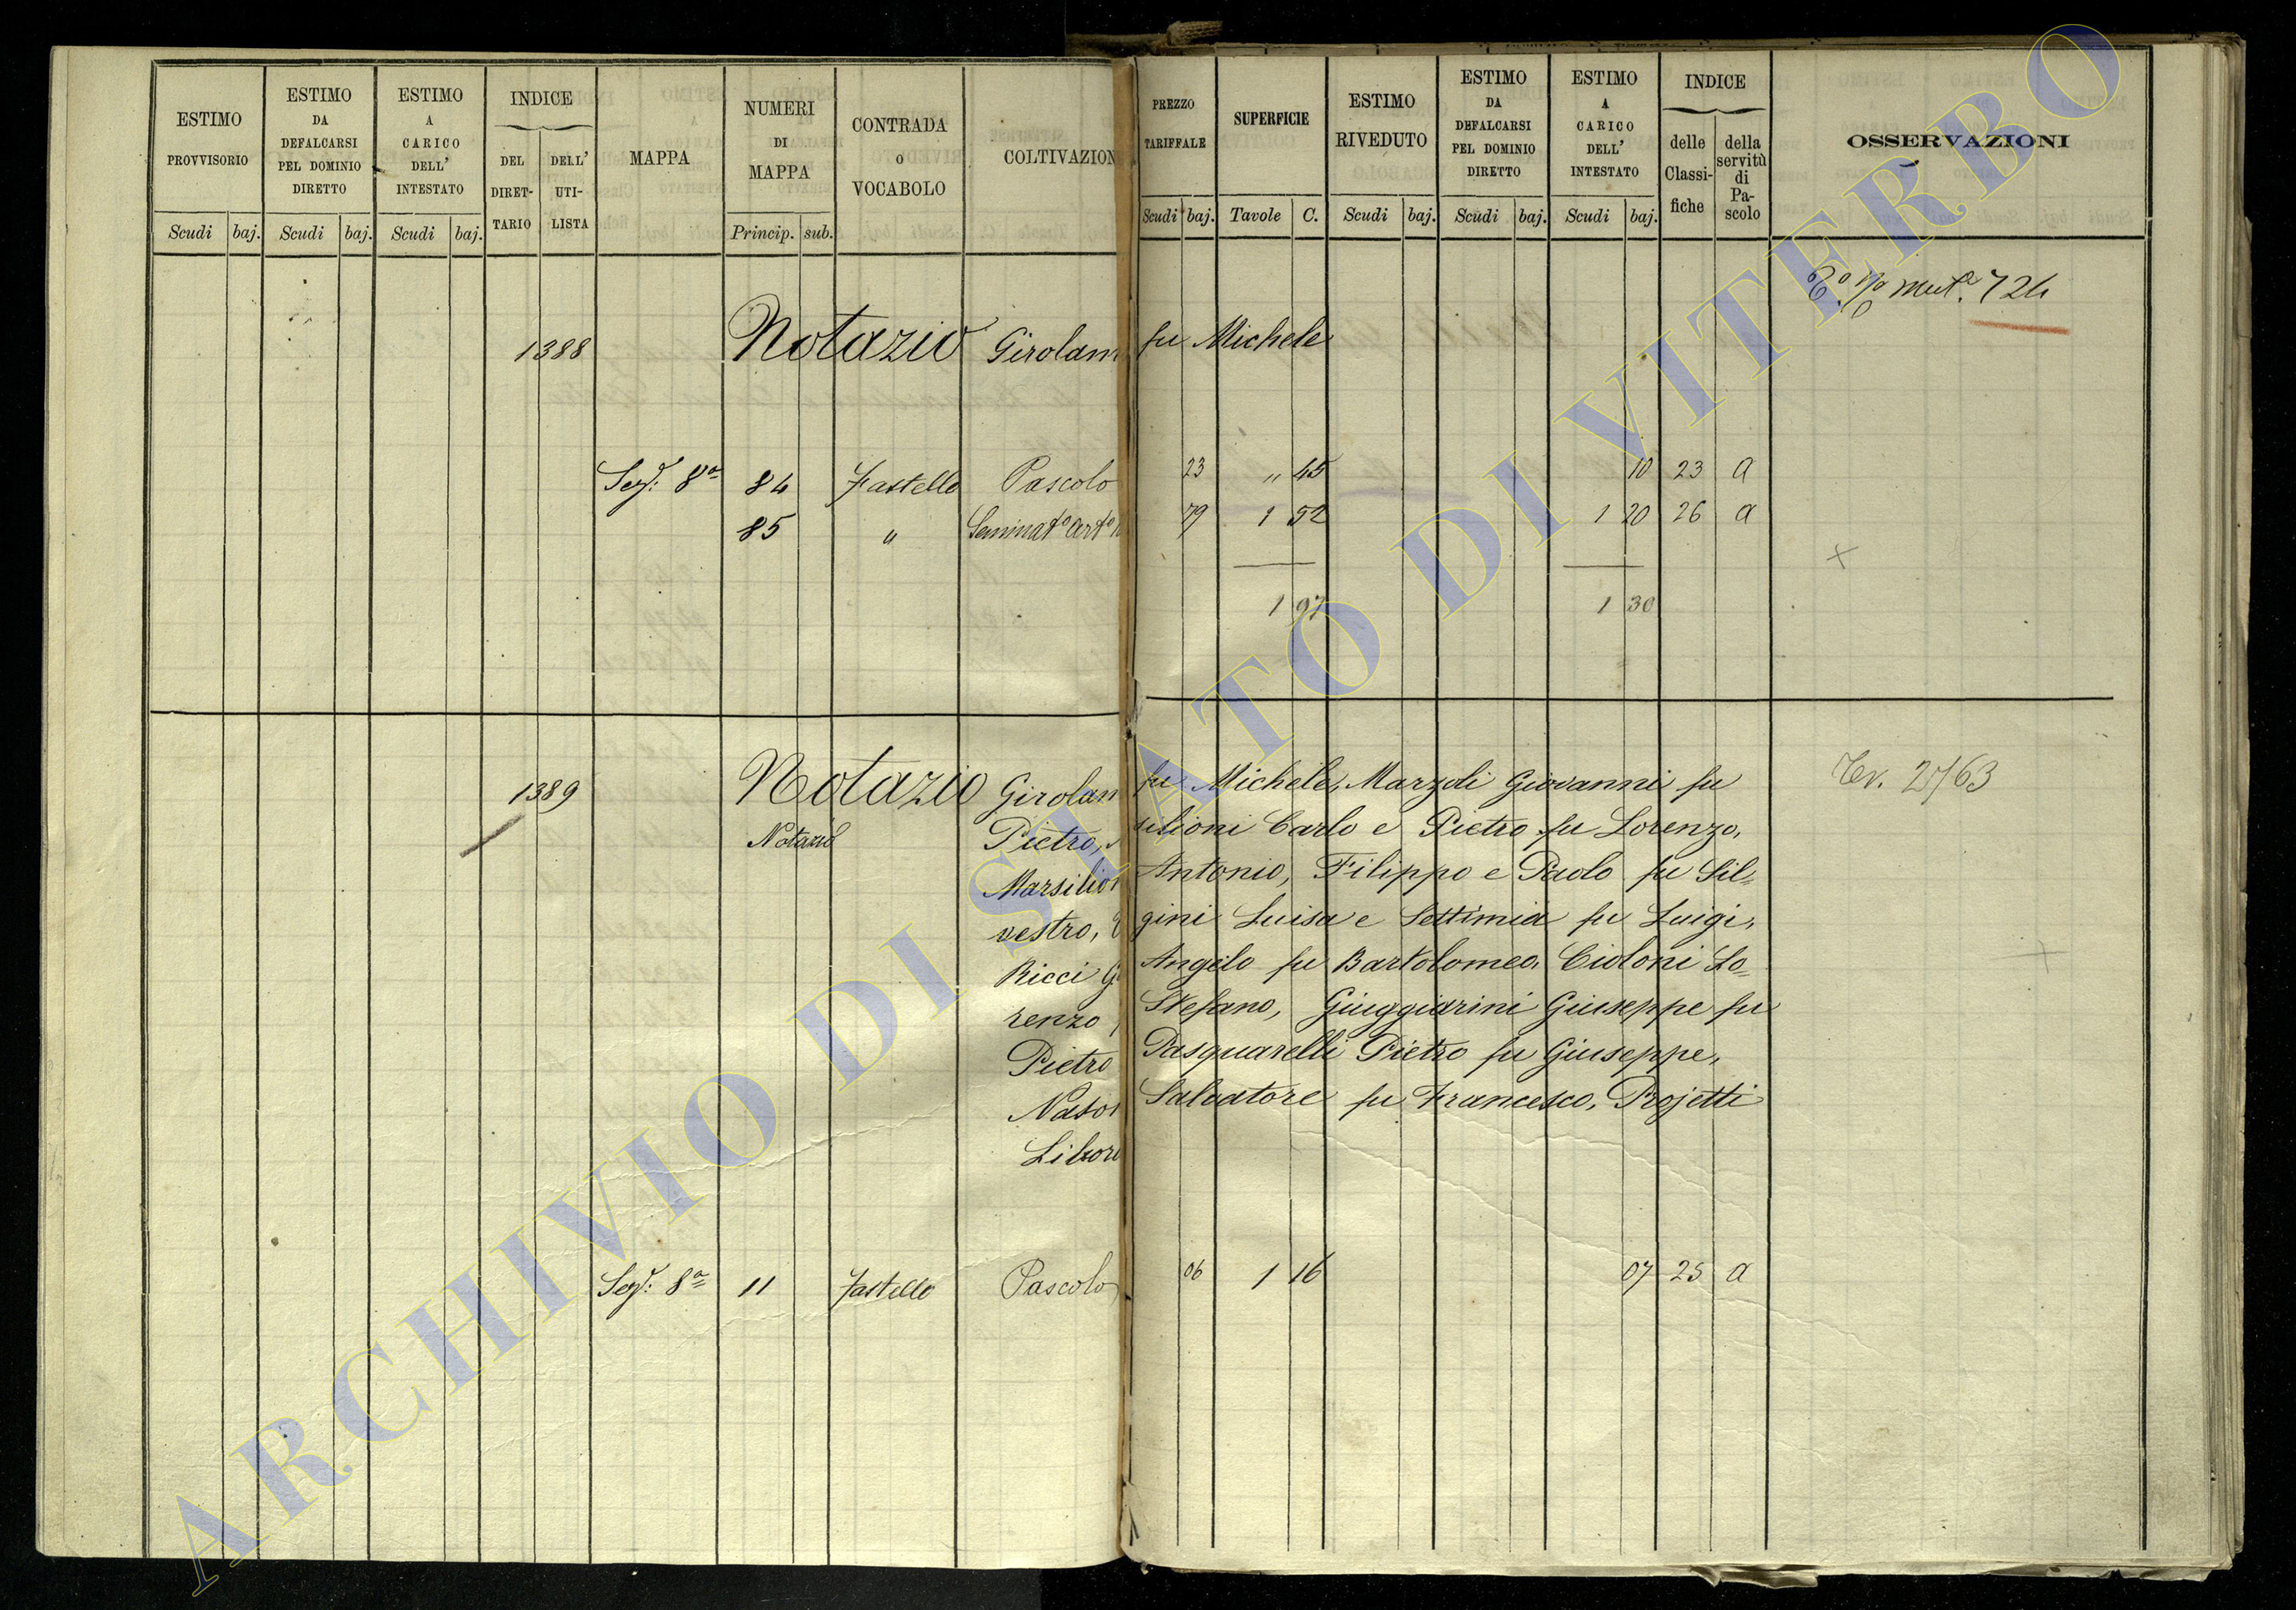 ESTIMO PROVVISORIO
Scudi baj.
ESTIMO DA DEFALCARSI PEL DOMINIO DIRETTO
Scudi baj.
ESTIMO A CARICO DELL' INTESTATO
Scudi baj.
INDICE
DEL DIRET- TARIO
DELL' UTI- LISTA
MAPPA
NUMERI DI MAPPA
Princip. sub.
CONTRADA O VOCABOLO
COLTIVAZION
PREZZO TARIFFALE
Scudi baj.
SUPERFICIE
Tavole C.
ESTIMO RIVEDUTO
Scudi baj.
ESTIMO DA DEFALCARSI PEL DOMINIO DIRETTO
Scudi baj.
ESTIMO A CARICO DELL' INTESTATO
Scudi baj.
INDICE
delle Classi- fiche
della servitù di Pa- scolo
OSSERVAZIONI
mut. 724
1388 Notazio Girolam fu Michele
Sez. 8a 84 Fastello Pascolo 23 " 45 10 23 a
85 " Seminat° art° 79 1 52 1 20 26 a
1 97 1 30
1389 Notazio Girolam fu Michele, Marzoli Giovanni fu
Notazio Pietro, silioni Carlo e Pietro fu Lorenzo,
Marsilion Antonio, Filippo e Paolo fu Sil=
vestro, gini Luisa e Settimia fu Luigi,
Ricci Angelo fu Bartolomeo, Cioloni Lo=
renzo Stefano, Giuggiarini Giuseppe fu
Pietro Pasquarelli Pietro fu Giuseppe,
Nason Salvatore fu Francesco, Projetti
Libor
2763
Sez. 8a 11 Fastello Pascolo 06 1 16 07 25 a
ARCHIVIO DI STATO DI VITERBO